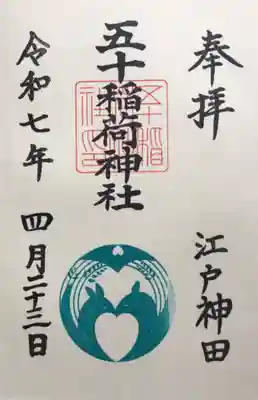 奉拝
江戸神田
五十稲荷神社
令和七年 四月二十三日